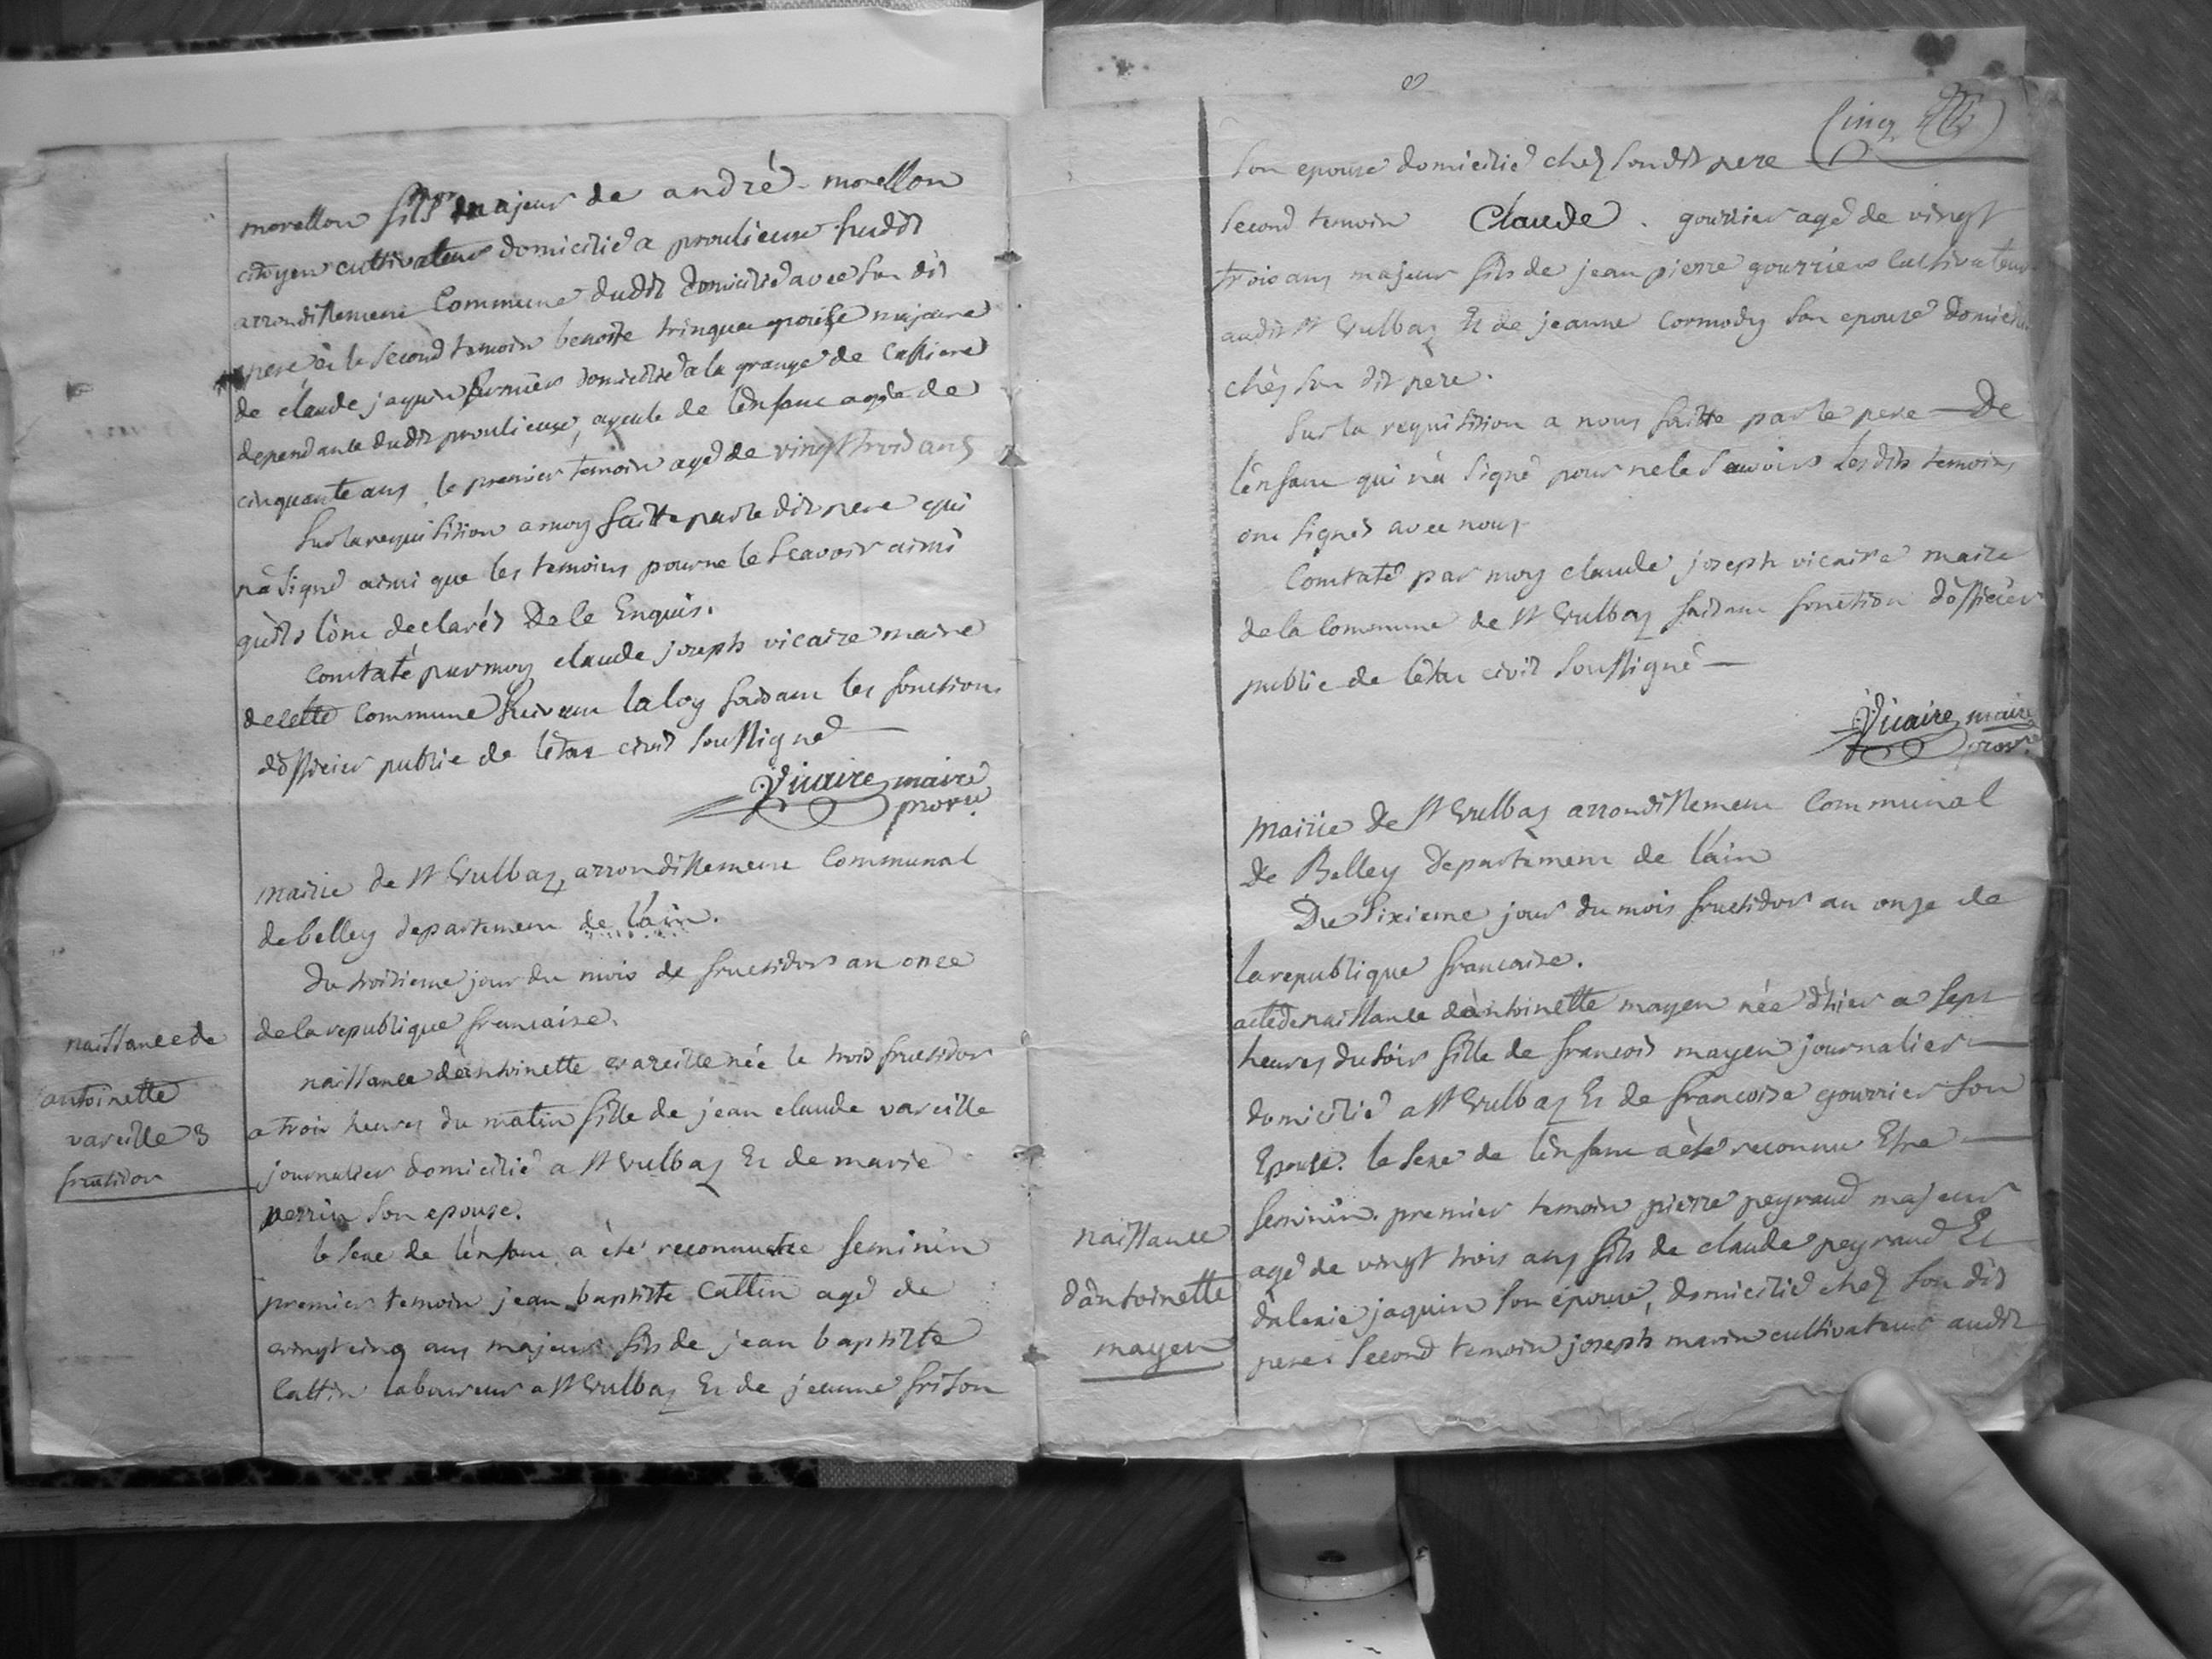 morellon fils majeur de andré - morellon
citoyen cultivateur domicilié a proulieuse sudit
arrondissement Commune dudit domicilié avec son dit
pere et le second temoin benoite trinque epouse majeure
de claude jaquin fermier domicilié a la grange de
dependante dudit proulieuse, ayeule de l'enfant agée de
cinquante ans le premier temoin agé de vingt trois ans
Sur la requisition a moy faitte par le dit pere qui
n'a signé ainsi que les temoins pour ne le Scavoir ainsi
qu'ils l'ont declarés De le Enquis.
Constaté par moy claude joseph vicaire maire
de cette Commune Suivant la loy faisant les fonctions
d'officier public de l'etat civil soussigné
Vicaire maire
provre
Mairie de St Vulbaz, arrondissement Communal
de belley departement de l'ain.
du troisieme jour du mois de fructidor an onze
de la republique francaise.
naissance de
antoinette
vareille 3
fructidor
naissance d'antoinette vareille née le trois fructidor
a trois heures du matin fille de jean claude vareille
journalier domicilié a St Vulbaz Et de marie
perrin son epouse.
le sexe de l'enfant a été reconnu etre feminin
premier temoin jean baptiste Cattin agé de
vingt cinq ans majeur fils de jean baptiste
Cattin laboureur a St Vulbaz Et de jeanne frison
Cinq
son epouse domicilié chez son dit pere
second temoin Claude. gourrier agé de vingt
trois ans majeur fils de jean pierre gourrier Cultivateur
audit St Vulbaz Et de jeanne Cormody son epouse
chez son dit pere.
Sur la requisition a nous faitte par le pere — De
l'enfant qui n'a signé pour ne le Savoir Les dits temoins
ont signés avec nous
Constaté par moy claude joseph vicaire maire
de la Commune de St Vulbaz faisant fonction d'officier
public de l'etat civil Soussigné —
Vicaire maire
provre
Mairie de St Vulbaz arrondissement Communal
De Belley Departement de l'ain
Du Sixieme jour du mois fructidor an onze de
la republique francaise.
acte de naissance d'antoinette mayen née d'hier a sept
heures du soir fille de francois mayen journalier —
domicilié a St Vulbaz Et de francoise gourrier son
Epouse. le sexe de l'enfant a été reconnu Etre —
feminin. premier temoin pierre peyraud majeur
naissance
d'antoinette
mayen
agé de vingt trois ans fils de claude peyraud Et
jaquin son epouse, domicilié chez son dit
pere. Second temoin joseph marin cultivateur audit